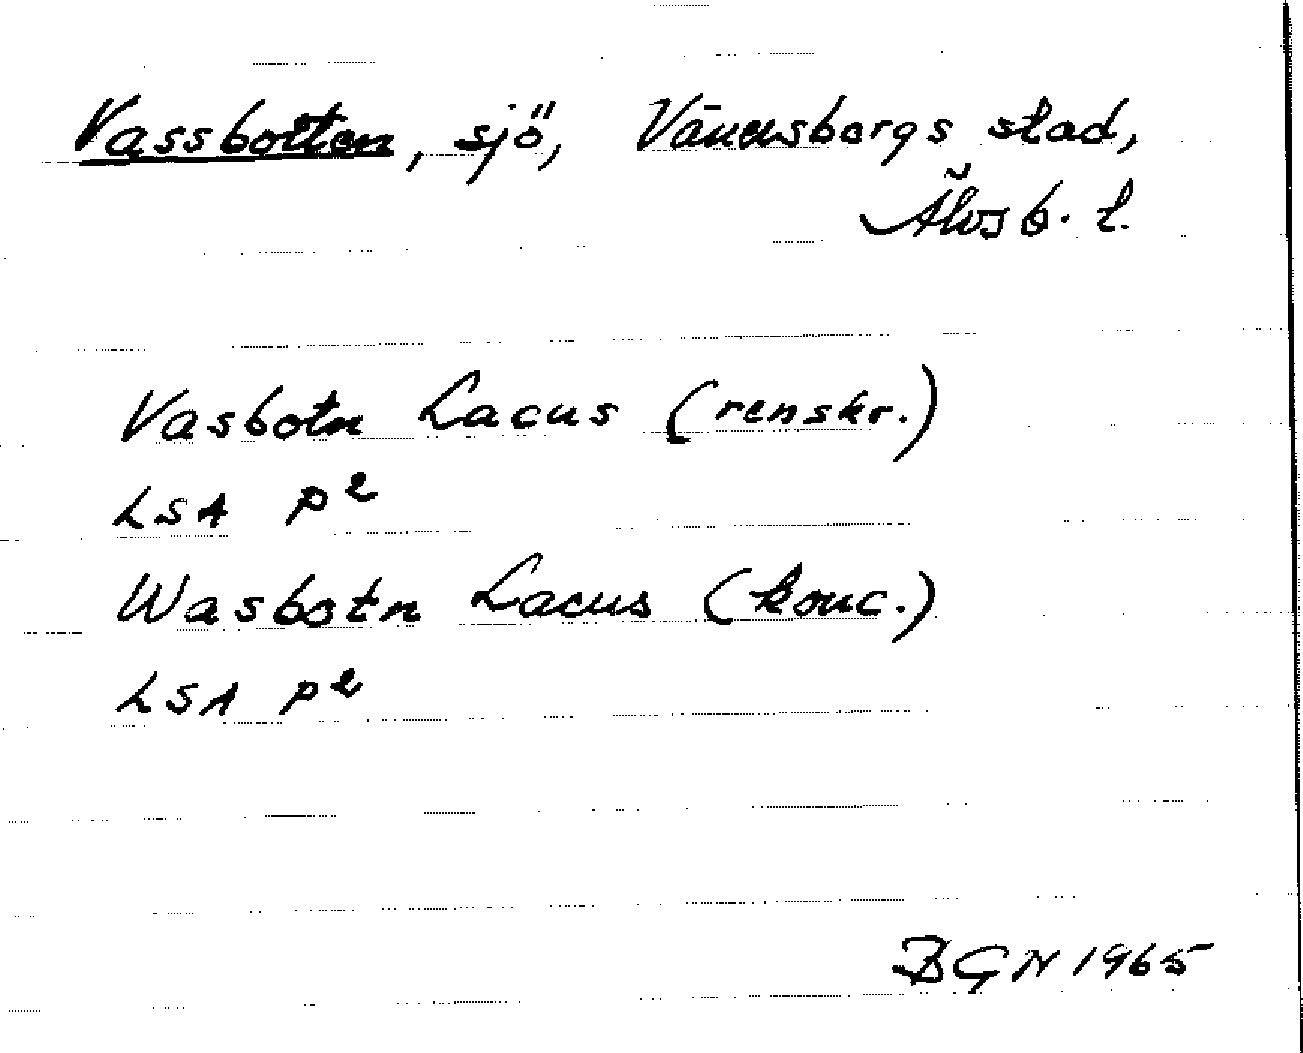 Vassbotten, sjö, Vänersborgs stad,
Älvsb. l.
Vasbotn Lacus (renskr.)
LSA P²
Wasbotn Lacus (konc.)
LSA P²
BGN 1965